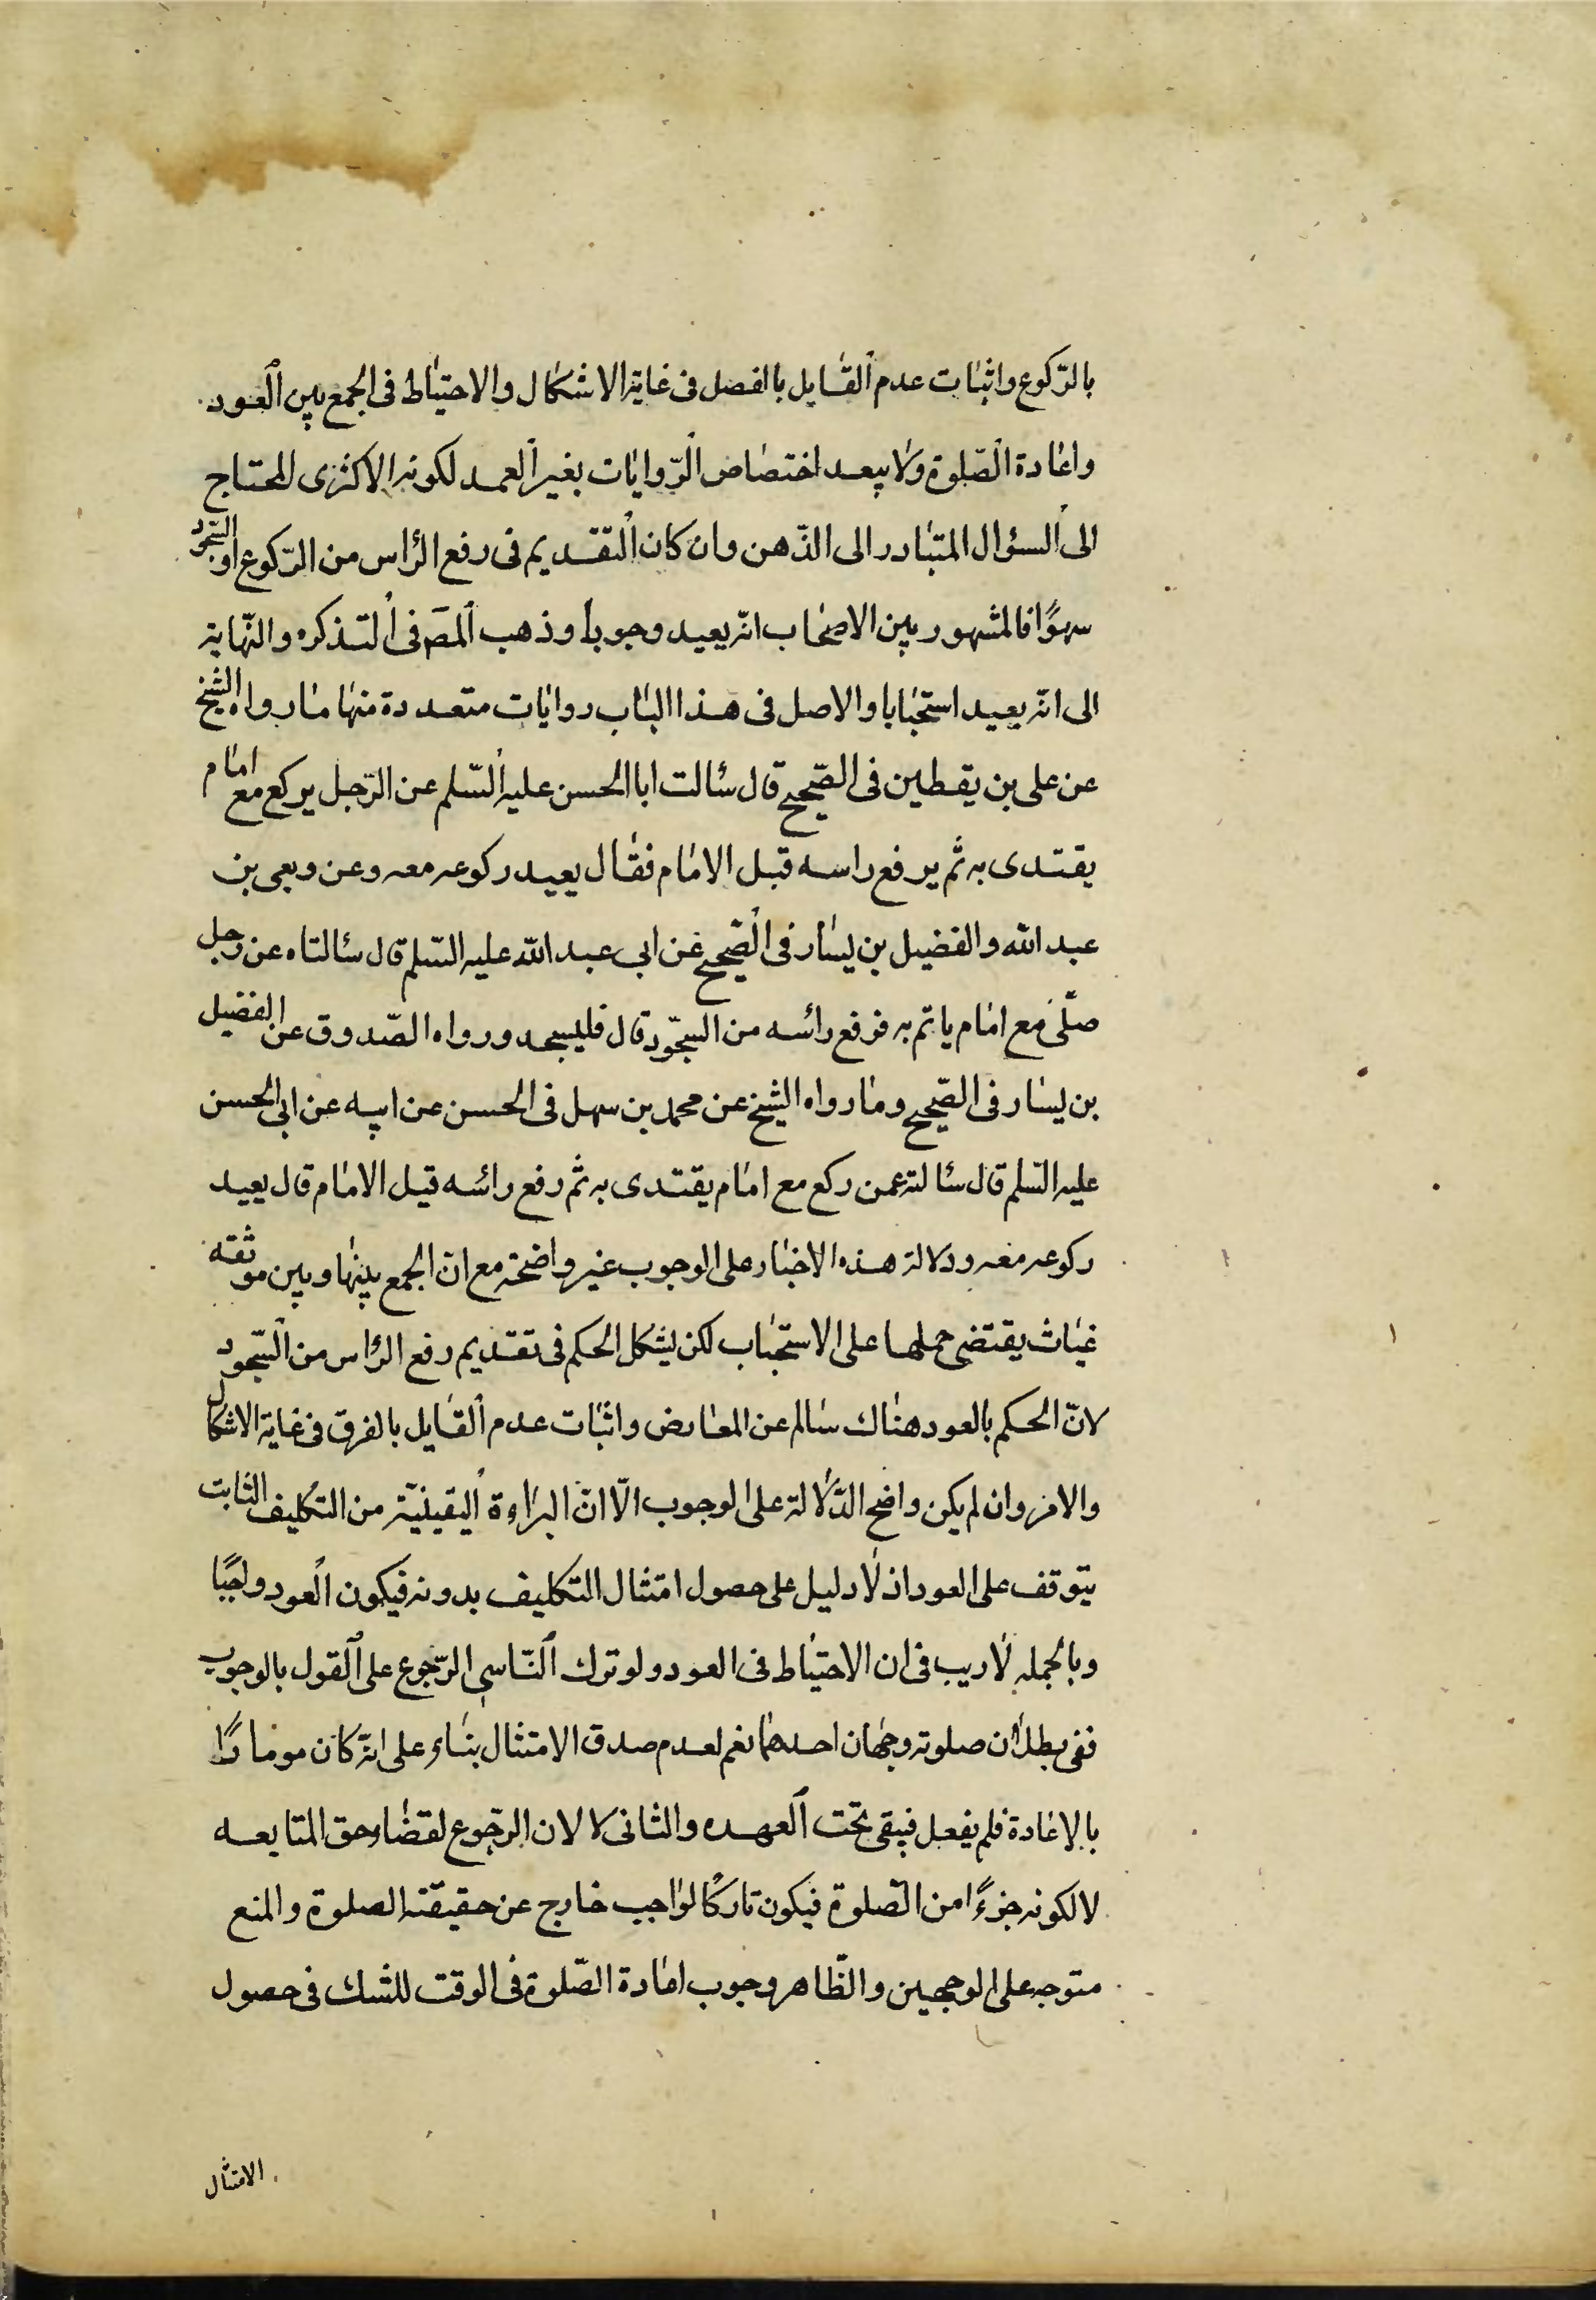 بالرّكوع واثبات عدم القايل بالفصل فى غاية الاشكال والاحتياط فى الجمع بين العود
واعادة الصّلوة ولا يبعد اختصاص الرّوايات بغير العمد لكونه الاكثرى المحتاج
الى السؤال المتبادر الى الذّهن وان كان التقديم فى رفع الرّاس من الرّكوع او السّجود
سهوًا فالمشهور بين الاصحاب انّه يعيد وجوباً وذهب المصَ فى التذكره والنّهاية
الى انّه يعيد استحبابا والاصل فى هذا الباب روايات متعددة منها ما رواه الشيخ
عن على بن يقطين فى الصّحيح قال سئالت ابا الحسن عليه السّلم عن الرّجل يركع مع امام
يقتدى به ثم يرفع راسه قبل الامام فقال يعيد ركوعه معه وعن وبعى بن
عبد الله والفضيل بن يسار فى الصّحيح عن ابى عبد الله عليه السّلم قال سئالتاه عن رجل
صلّى مع امام ياتم به فرفع رائسه من السجّود قال فليسجد ورواه الصّدوق عن الفضيل
بن يسار فى الصّحيح وما رواه الشيخ عن محمد بن سهل فى الحسن عن ابيه عن ابى الحسن
عليه السّلم قال سئالته عمن ركع مع امام يقتدى به ثم رفع رائسه قبل الامام قال يعيد
ركوعه معه ودلالة هذه الاخبار على الوجوب غير واضحة مع ان الجمع بينها وبين موثقه
غياث يقتضى حملها على الاستحباب لكن يشكل الحكم فى تقديم رفع الرّاس من السّجود
لانّ الحكم بالعود هناك سالم عن المعارض واثبات عدم القايل بالفرق فى غاية الاشكال
والامر وان لم يكن واضح الدّلالة على الوجوب الّا انّ البراءة اليقينيّة من التكليف الثابت
يتوقف على العود اذ لا دليل على حصول امتثال التكليف بدونه فيكون العود واجبًا
وبالجمله لا ريب فى ان الاحتياط فى العود ولو ترك النّاسى الرّجوع على القول بالوجوب
ففى بطلان صلوته وجهان احدهما نعم لعدم صدق الامتثال بناء على انّه كان مومارًا
بالاعادة فلم يفعل فيبقى تحت العهده والثانى لا لان الرجّوع لقضاء حق المتابعه
لا لكونه جزءًا من الصّلوة فيكون تاركًا لواجب خارج عن حقيقته الصلوة والمنع
متوجه على الوجهين والظّاهر وجوب اعادة الصّلوة فى الوقت للشك فى حصول
الامتثال